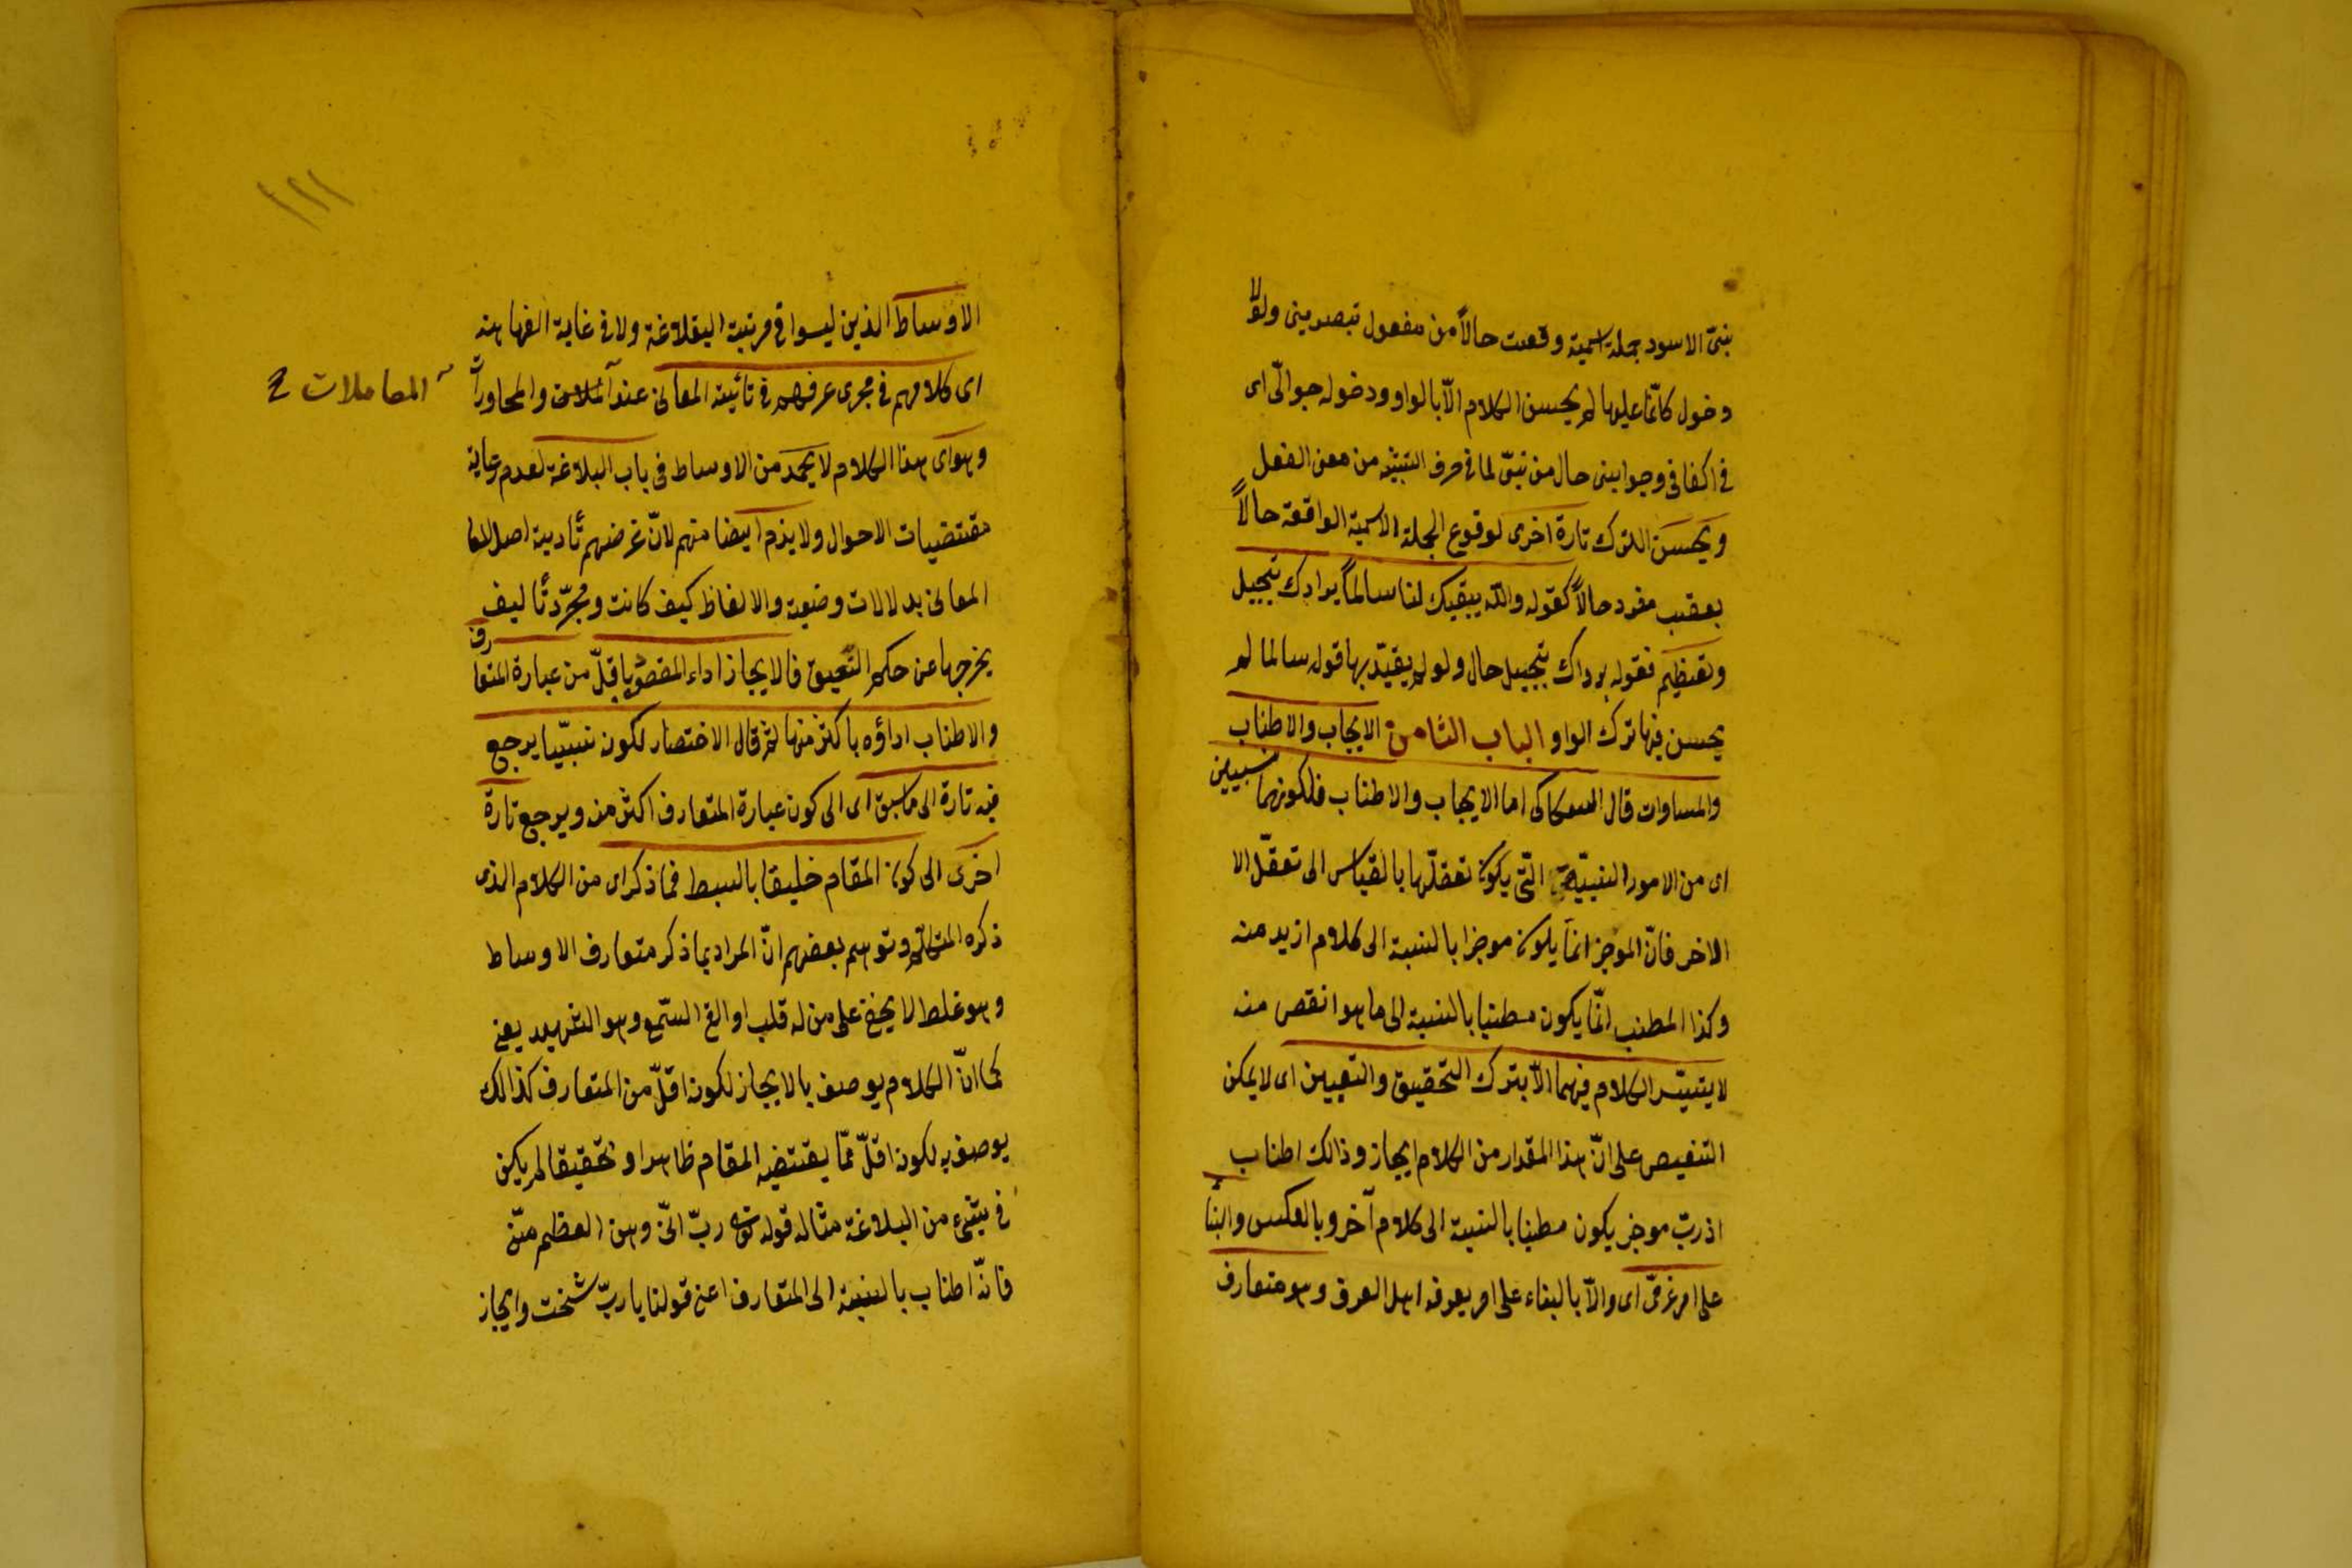 بنىّ الاسود جملة اسمية وقعت حالاً من مفعول تبصرينى ولولا
دخول كانّما عليها لم يحسن الكلام الاّ بالواو ودخوله حوالىّ اى
فى اكفافى وجوابنى حال من بنىّ لما فى حرف التشبيه من معنى الفعل
ويحسن الترك تارة اخرى لوقوع الجملة الاسمية الواقعة حالاً
بعقب مفرد حالاً كقوله والله يبقيك لنا سالماً برداك تبجيل
وتعظيم فقوله برداك تبجيل حال ولو لم يقيّد بها قوله سالما لم
يحسن فيها ترك الواو الباب الثامن الايجاب والاطناب
والمساوات قال السكاكى اما الايجاب والاطناب فلكونهما نسبيين
اى من الامور النسبيّة التّى يكون تعقلّها بالقياس الى تعقّل الا
الاخر فانّ الموجز انما يكون موجزا بالنسبة الى كلام ازيد منه
وكذا المطنب انّما يكون مطنبا بالنسبة الى ما هو انقص منه
لا يتيسّر الكلام فيهما الاّ بترك التحقيق والتعيين اى لا يمكن
التنصيص على انّ هذا المقدار من الكلام ايجاز وذالك اطناب
اذ ربّ موجز يكون مطنبا بالنسبة الى كلام آخر وبالعكس والبنا
على امر عرفىّ اى والاّ بالبناء على امر يعرفه اهل العرف وهو متعارف
الاوساط الذين ليسوا فى مرتبة البلاغة ولا فى غاية الفهاهة
اى كلامهم فى مجرى عرفهم فى تأدية المعانى عند الملاات والمحاورات
المعاملات
وهو اى هذا الكلام لا يحمد من الاوساط فى باب البلاغة لعدم رعاية
مقتضيات الاحوال ولا يذم ايضا منهم لانّ غرضهم تأدية اصل
المعانى بدلالات وضعية والالفاظ كيف كانت ومجرّد تأليف
يخرجها عن حكم النعيق فالايجاز اداء المقصود باقلّ من عبارة المتعارف
والاطناب اداؤه باكثر منها ثم قال الاختصار لكونه نسبيّا يرجع
فيه تارة الى ما سبق اى الى كون عبارة المتعارف اكثر منه ويرجع تارة
اخرى الى كون المقام خليقا بالبسط مما ذكر اى من الكلام الذى
ذكره المتكلم وتوهم بعضهم انّ المراد بما ذكر متعارف الاوساط
وهو غلط لا يخفى على من له قلب او القى السّمع وهو الشهيد يعنى
كما انّ الكلام يوصف بالايجاز لكونه اقلّ من المتعارف كذالك
يوصف به لكونه اقلّ ممّا يقتضيه المقام ظاهرا و تحقيقا لم يكن
فى شىء من البلاغة مثاله قوله تع ربّ انىّ وهن العظم منّى
فانّه اطناب بالنسبة الى المتعارف اعنى قولنا يا ربّ شخت وايجاز